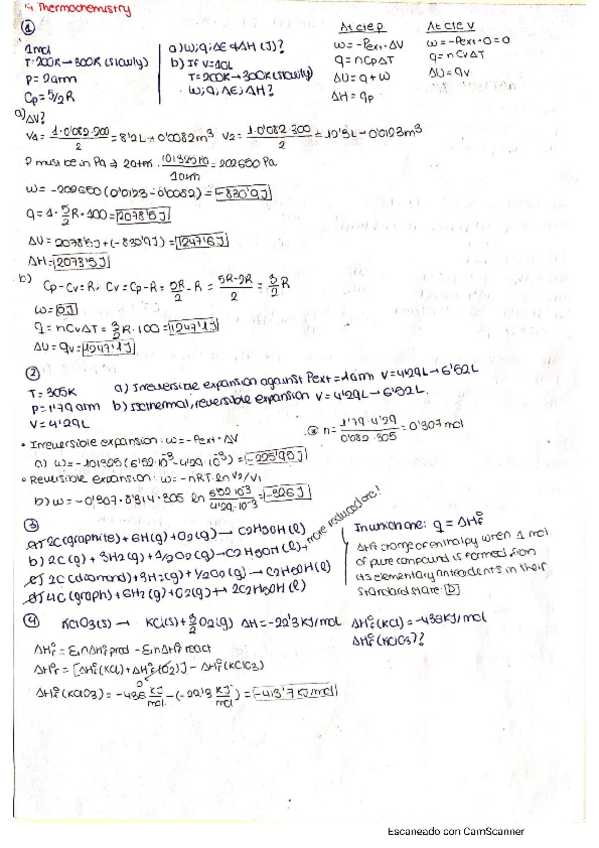 4 Thermochemistry
①
1mol
T=200K→300K (slowly)
P=2atm
Cp=5/2R
a) w; q; ΔE & ΔH (J)?
b) If V=10L
T=200K→300K (slowly)
w; q; ΔE; ΔH?
At cte p
w=-Pext·ΔV
q=nCpΔT
ΔU=q+w
ΔH=qp
At cte v
w=-Pext·0=0
q=nCvΔT
ΔU=qv
a) ΔV?
V1=1·0'082·200/2=8'2L→0'0082m³ V2=1·0'082·300/2=12'3L→0'0123m³
P must be in Pa → 2atm·101325Pa/1atm=202650Pa
w=-202650(0'0123-0'0082)=-830'9J
q=1·5/2R·100=2078'5J
ΔU=2078'5J+(-830'9J)=1247'6J
ΔH=2078'5J
b) Cp-Cv=R, Cv=Cp-R=5R/2-R=5R-2R/2=3/2R
w=0J
q=nCvΔT=3/2R·100=1247'1J
ΔU=qv=1247'1J
②
T=305K a) Irreversible expansion against Pext=1atm V=4'29L→6'52L
P=1'79atm b) Isothermal, reversible expansion V=4'29L→6'52L.
V=4'29L
• Irreversible expansion: w=-Pext·ΔV n=1'79·4'29/0'082·305=0'307mol
a) w=-101325(6'52·10⁻³-4'29·10⁻³)=-225'95J
• Reversible expansion: w=-nRT·ln V2/V1
b) w=-0'307·8'314·305 ln 6'52·10⁻³/4'29·10⁻³=-326J
③
a) 2C(graphite)+6H(g)+O2(g)→C2H5OH(l)
b) 2C(g)+3H2(g)+1/2O2(g)→C2H5OH(l) more reduced one!
c) 2C(diamond)+3H2(g)+1/2O2(g)→C2H5OH(l)
d) 4C(graph)+6H2(g)+O2(g)→2C2H5OH(l)
In which one: q=ΔHf°
ΔHf change of enthalpy when 1 mol
of pure compound is formed from
its elementary antecedents in their
standard state.
④ KClO3(s)→KCl(s)+3/2O2(g) ΔH=-22'3KJ/mol ΔHf°(KCl)=-436KJ/mol
ΔHf°(KClO3)?
ΔHr°=ΣnΔHf°prod-ΣnΔHf°react
ΔHr°=[ΔHf°(KCl)+ΔHf°(O2)]-ΔHf°(KClO3)
0
ΔHf°(KClO3)=-436KJ/mol-(-22'3KJ/mol)=-413'7KJ/mol
Escaneado con CamScanner